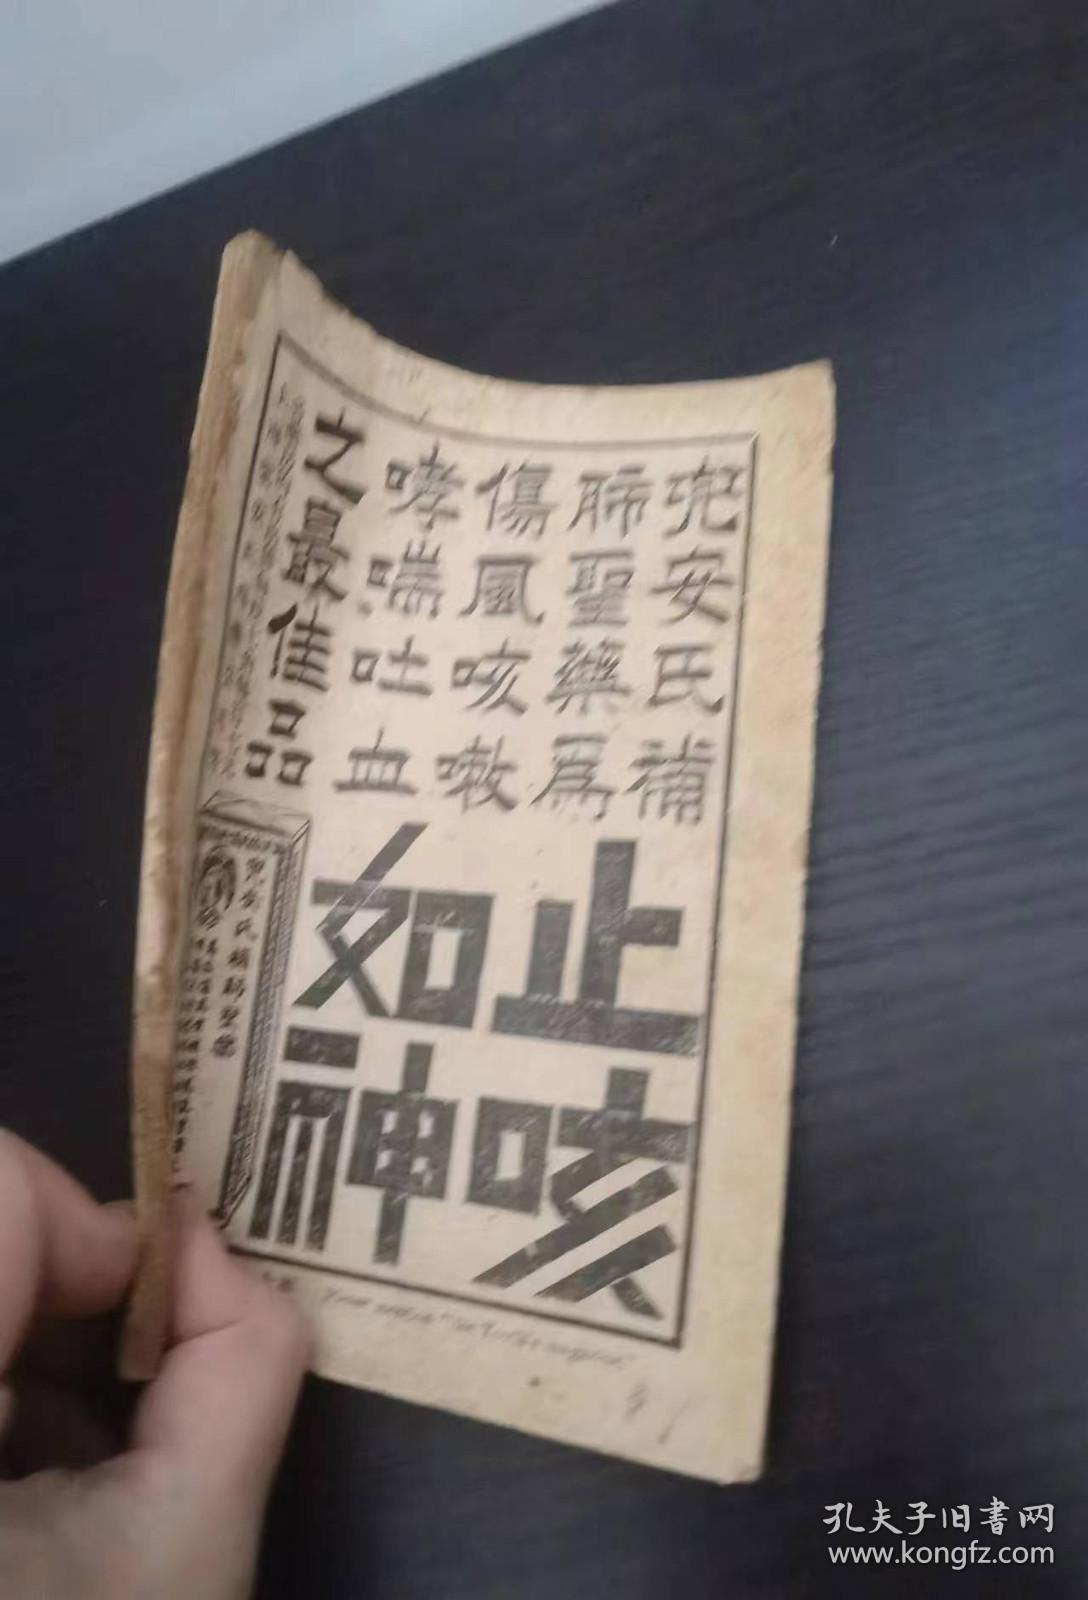 兜安氏補
肺聖藥爲
傷風咳嗽
哮喘吐血
之最佳品
止咳
如神
兜安氏補肺聖藥
孔夫子旧書网
www.kongfz.com